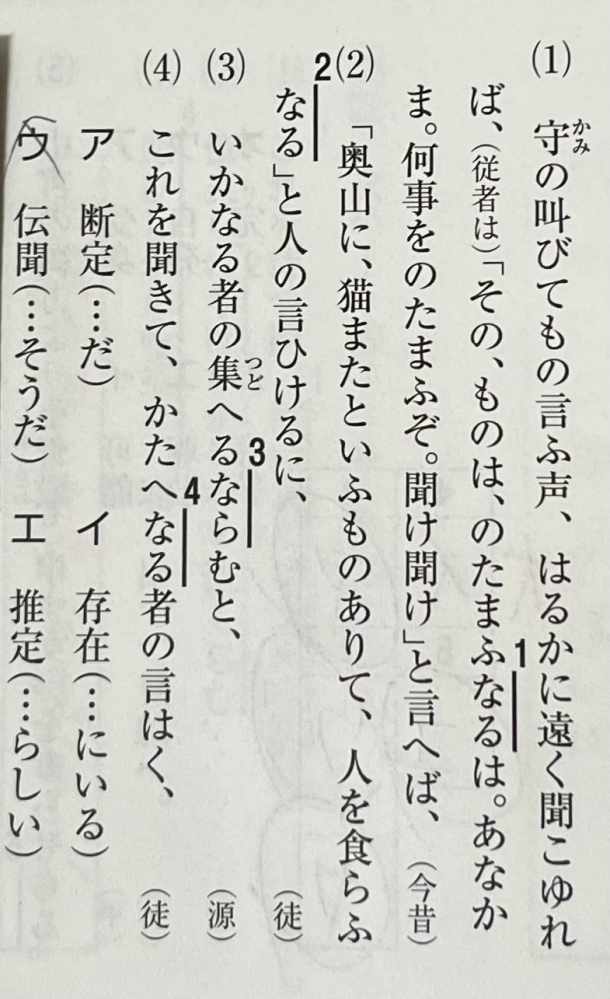 (1) 守の叫びてもの言ふ声、はるかに遠く聞こゆれ
かみ
ば、(従者は)「その、ものは、のたまふなるは。あなか
1
ま。何事をのたまふぞ。聞け聞け」と言へば、(今昔)
(2) 「奥山に、猫またといふものありて、人を食らふ
2
なる」と人の言ひけるに、(徒)
(3) いかなる者の集へるならむと、(源)
つど
3
(4) これを聞きて、かたへなる者の言はく、(徒)
4
ア 断定(…だ) イ 存在(…にいる)
ウ 伝聞(…そうだ) エ 推定(…らしい)